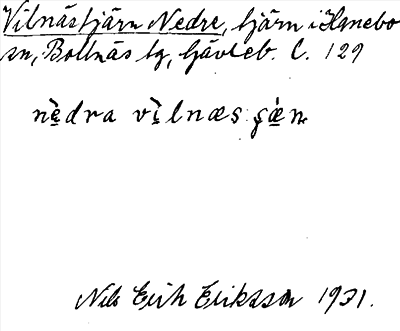 Vilnästjärn Nedre, tjärn i Hanebo
sn, Bollnäs tg, Gävleb. l. 129
nè̱dra vì̱lnæs çǽ̱n
Nils Erik Eriksson 1931.